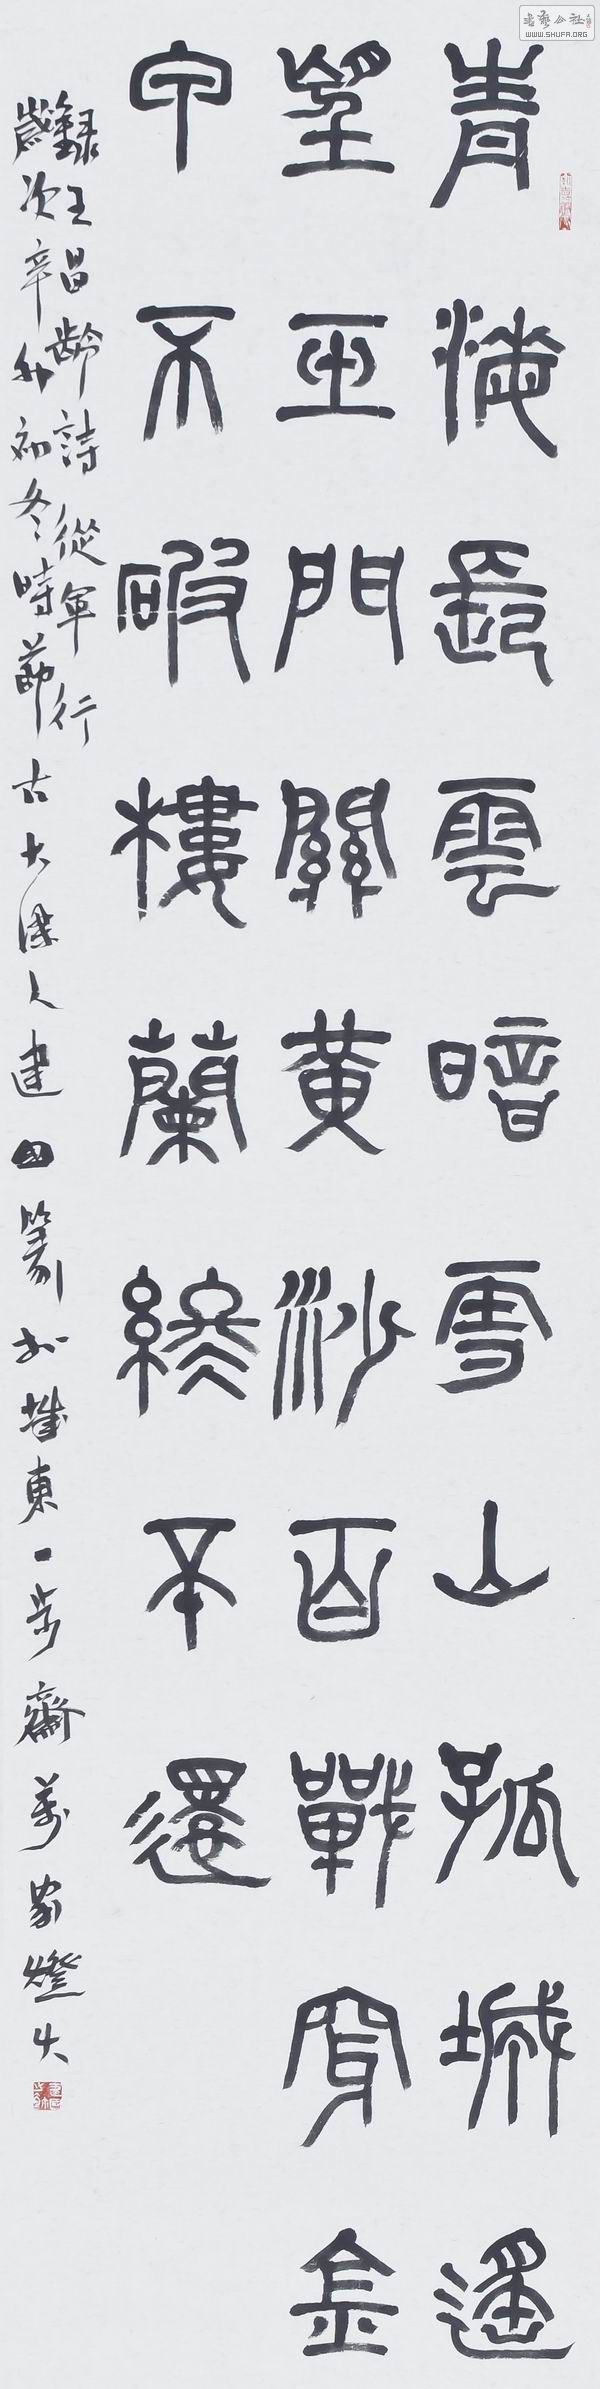 青海長雲暗雪山孤城遙
望玉門關黃沙百戰穿金
甲不破樓蘭終不還
錄王昌齡詩從軍行
歲次辛卯初冬時節古大梁人建國篆於東一步齋萬家燈火
書藝公社
WWW.SHUFA.ORG